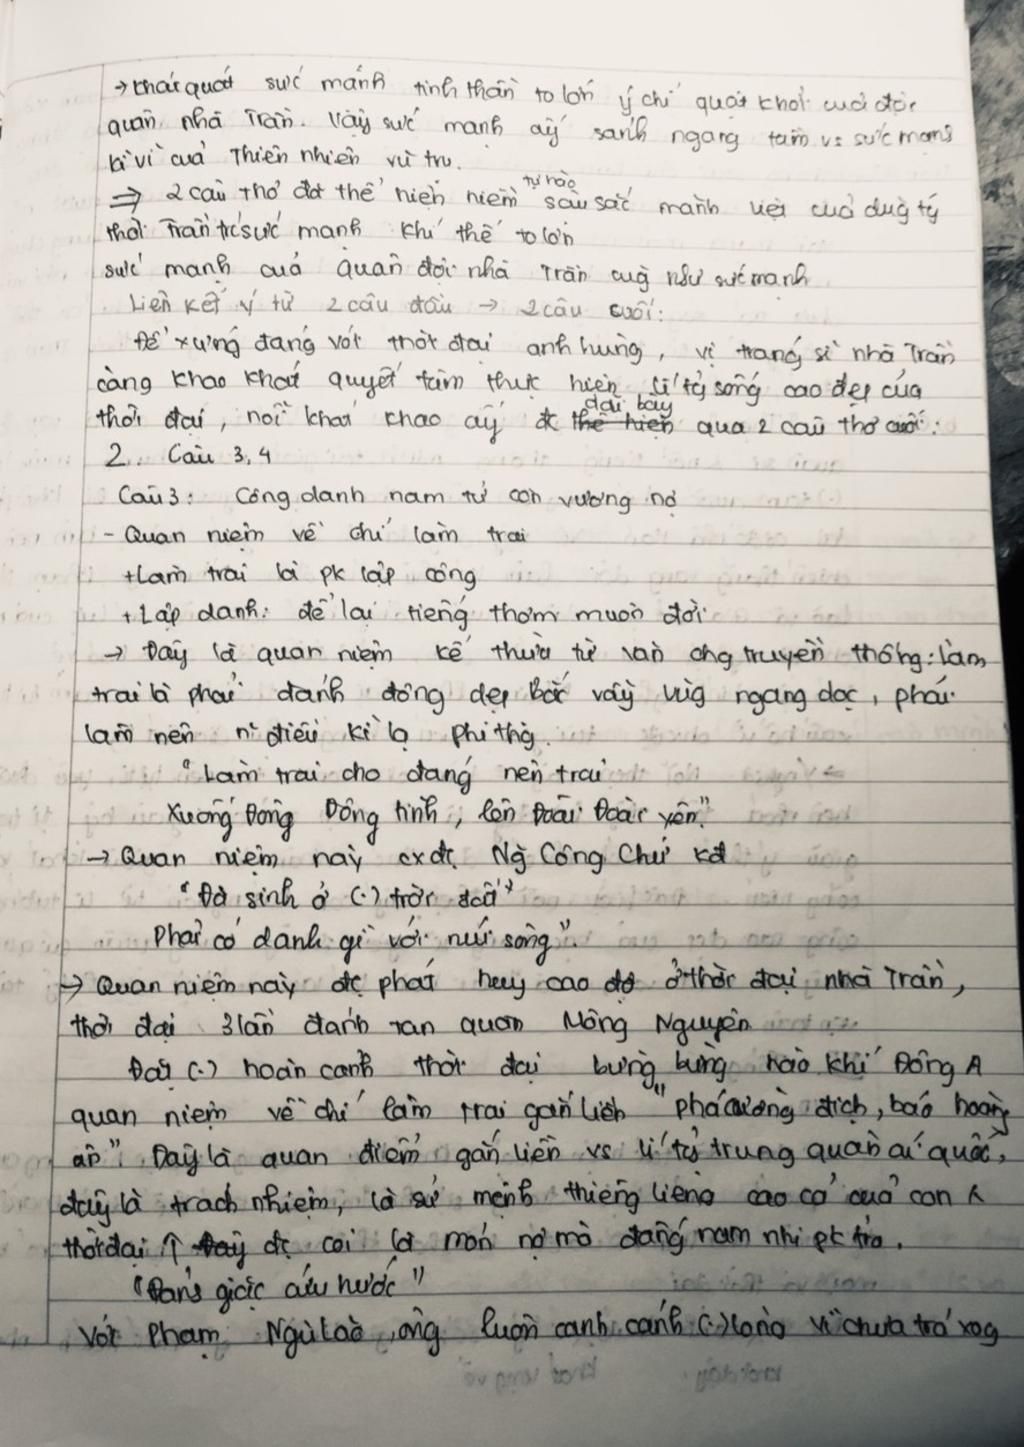 → Khái quát sức mạnh tinh thần to lớn ý chí quật khởi của đội
quân nhà Trần. Vậy sức mạnh ấy sánh ngang tầm vs sức mạnh
kì vĩ của Thiên nhiên vũ trụ.
⇒ 2 câu thơ đã thể hiện niềm tự hào sâu sắc mãnh liệt của dũng tg
thời Trần trc sức mạnh khí thế to lớn
sức mạnh của quân đội nhà Trần cũg như sức mạnh
Liên kết ý từ 2 câu đầu → 2 câu cuối:
Để xứng đáng với thời đại anh hùng, vị tráng sĩ nhà Trần
càng khao khát quyết tâm thực hiện lí tg sống cao đẹp của
thời đại, nỗi khát khao ấy đc thể hiện dãi bày qua 2 câu thơ cuối:
2. Câu 3, 4
Câu 3: Công danh nam tử còn vương nợ
- Quan niệm về chí làm trai
+ Làm trai là pk lập công
+ Lập danh: để lại tiếng thơm muôn đời
→ Đây là quan niệm kế thừa từ văn chg truyền thống: làm
trai là phải đánh đông dẹp Bắc vẫy vùg ngang dọc, phải
làm nên n~ điều kì lạ phi thg.
"Làm trai cho đáng nên trai
Xuống Đông Đông tĩnh, lên Đoài Đoài yên"
→ Quan niệm này cx đc Ng~ Công Chứ kđ
"Đã sinh ở (.) trời đất"
Phải có danh gì với núi sông".
→ Quan niệm này đc phát huy cao độ ở thời đại nhà Trần,
thời đại 3 lần đánh tan quân Mông Nguyên
Đặt (.) hoàn cảnh thời đại bừng bừng hào khí Đông A
quan niệm về chí làm trai gắn liền "phá cường địch, báo hoàng
ân". Đây là quan điểm gắn liền vs lí tg trung quân ái quốc,
đây là trách nhiệm, là sứ mệnh thiêng liêng cao cả của con
thời đại ↑ Đây đc coi là món nợ mà đấng nam nhi pk trả.
"Đánh giặc cứu nước"
Với Phạm Ngũ Lão, ông luôn canh cánh (.) lòng vì chưa trả xog